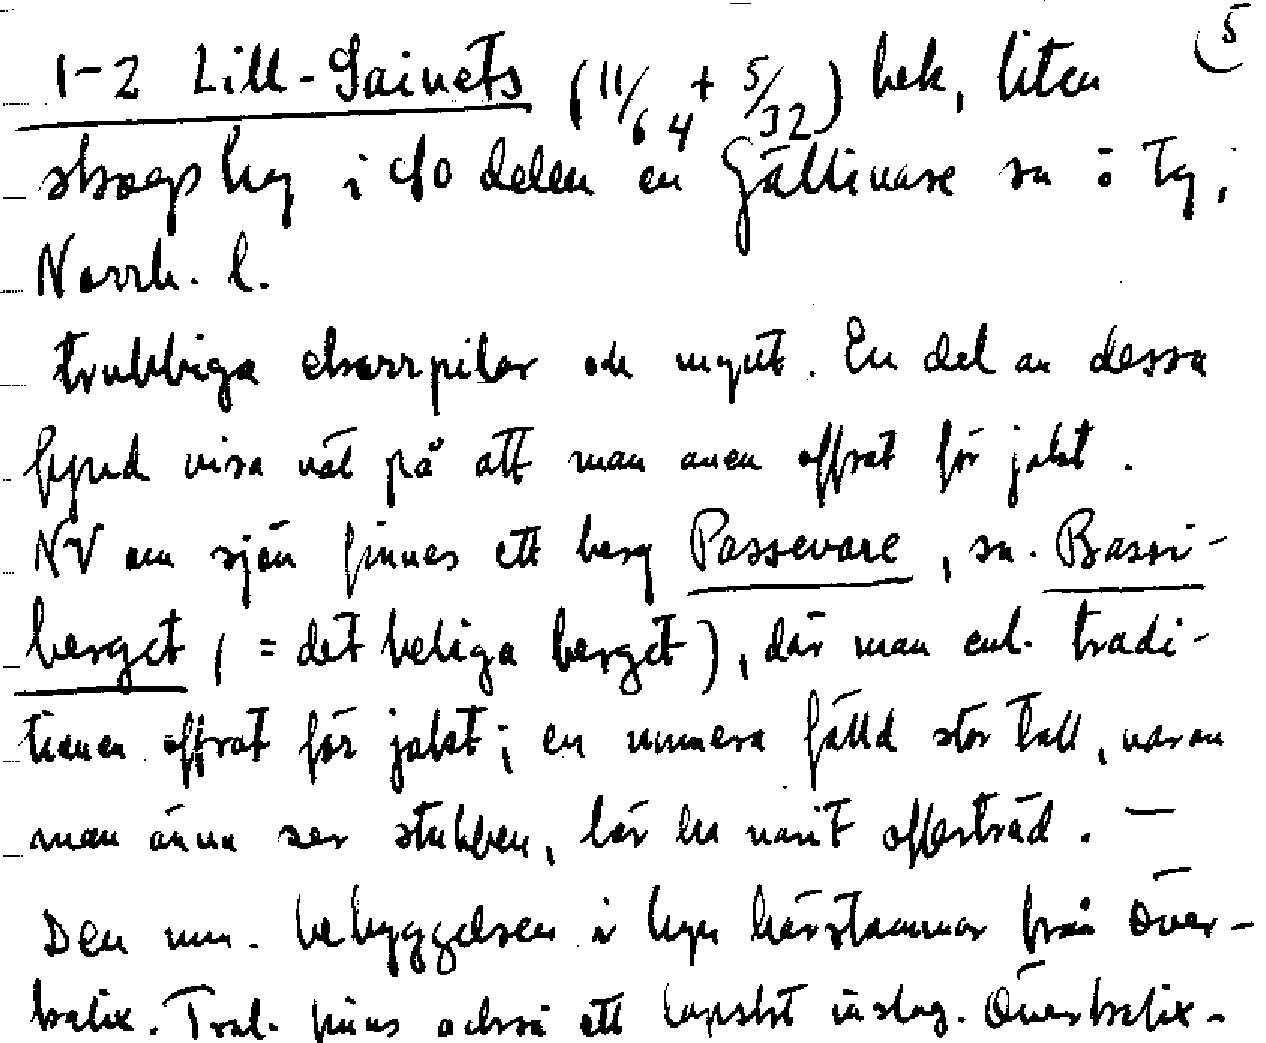 5
1-2 Lill-Saivets (11/64 + 5/32) bek, liten
skogsby i NO delen av Gällivare sn ö tg,
Norrb. l.
trubbiga ekorrpilar och mynt. En del av dessa
fynd visa nät på att man även offrat för jakt.
NV om sjön finnes ett berg Passevare, sv. Bassi-
berget ( = det heliga berget), där man enl. tradi-
tionen offrat för jakt; en numera fälld stor tall, varav
man ännu ser stubben, lär ha varit offerträd. —
Den nuv. bebyggelsen i byn härstammar från Över-
kalix. Trol. finns också ett lapskt inslag. Överkalix-